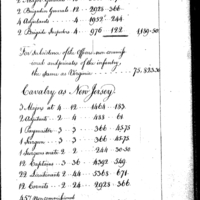 2 Brigadier Generals 12 2928 366
4 Adjutants 4 1952 244
2 Brigade Inspectors 4 976 122 1,189.50
For Subsistence of the Officers non commiss
and privates of the infantry,
the same as Virginia 75,823.50
Cavalry as New Jersey
3 Majors at 4 12 1464 183
2 Adjutant 2 4 488 61
1 Paymaster 3 3 366 45.75
1 Surgeon 3 3 366 45.75
1 Surgeons mate 2 2 244 30.50
12 Captains 3 36 4392 549
22 Lieutenants 2 44 5368 671
12 Cornets 2 24 2928 366
457 Non commissioned